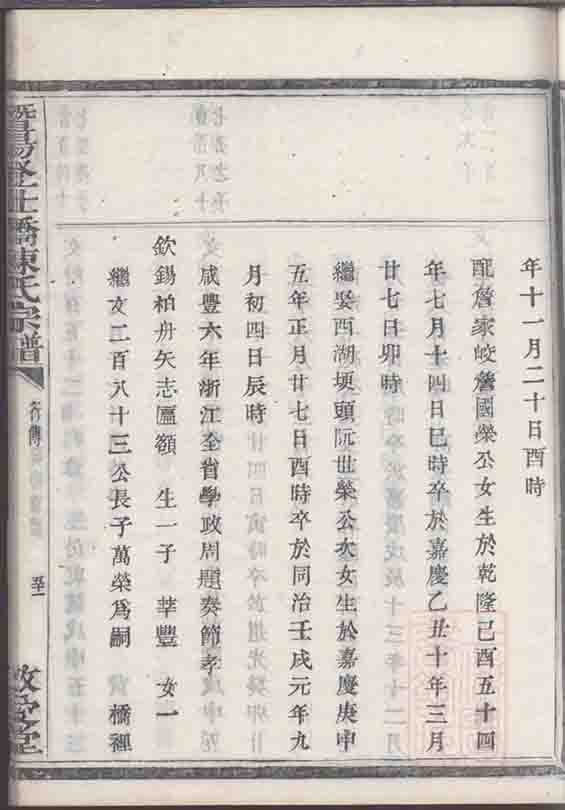 年十一月二十日酉時
配詹家峧詹國榮公女生於乾隆己酉五十四
年七月十四日巳時卒於嘉慶乙丑十年三月
廿七日卯時
繼娶西湖埂頭阮世榮公次女生於嘉慶庚申
五年正月廿七日酉時卒於同治壬戌元年九
月初四日辰時
咸豐六年浙江全省學政周題奏節孝
欽錫柏舟矢志匾額 生一子 莘豐 女一
繼文二百八十三公長子萬榮爲嗣 橋裡
暨陽登仕橋陳氏宗譜
行傳
敬受堂